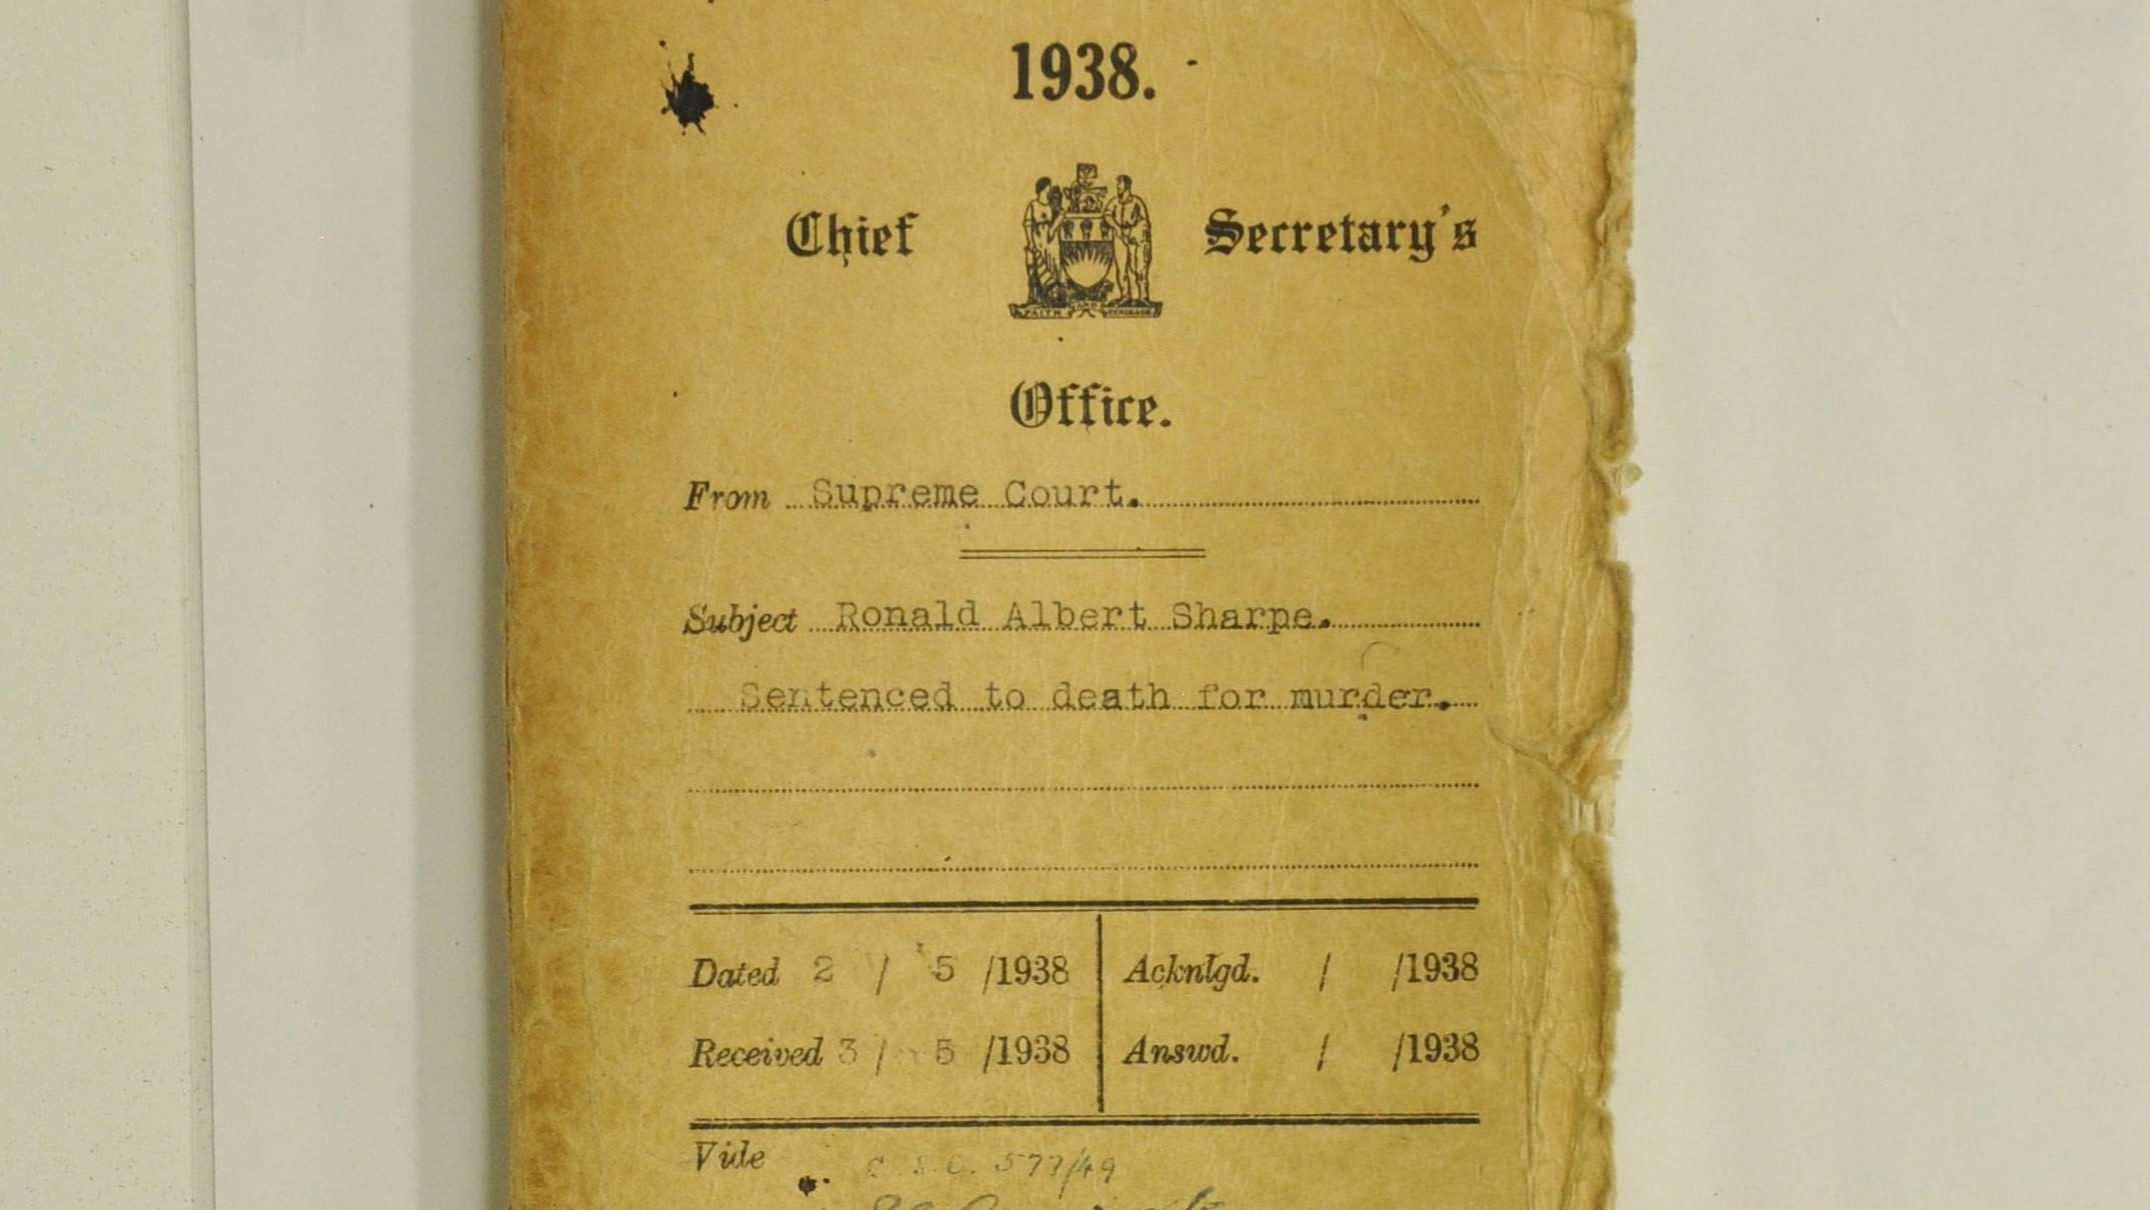 1938.
Chief Secretary's
FAITH AND
Office.
From Supreme Court.
Subject Ronald Albert Sharpe.
Sentenced to death for murder.
Dated 2 / 5 /1938 Acknlgd. / /1938
Received 3 / 5 /1938 Answd. / /1938
Vide
C.S.O. 577/49